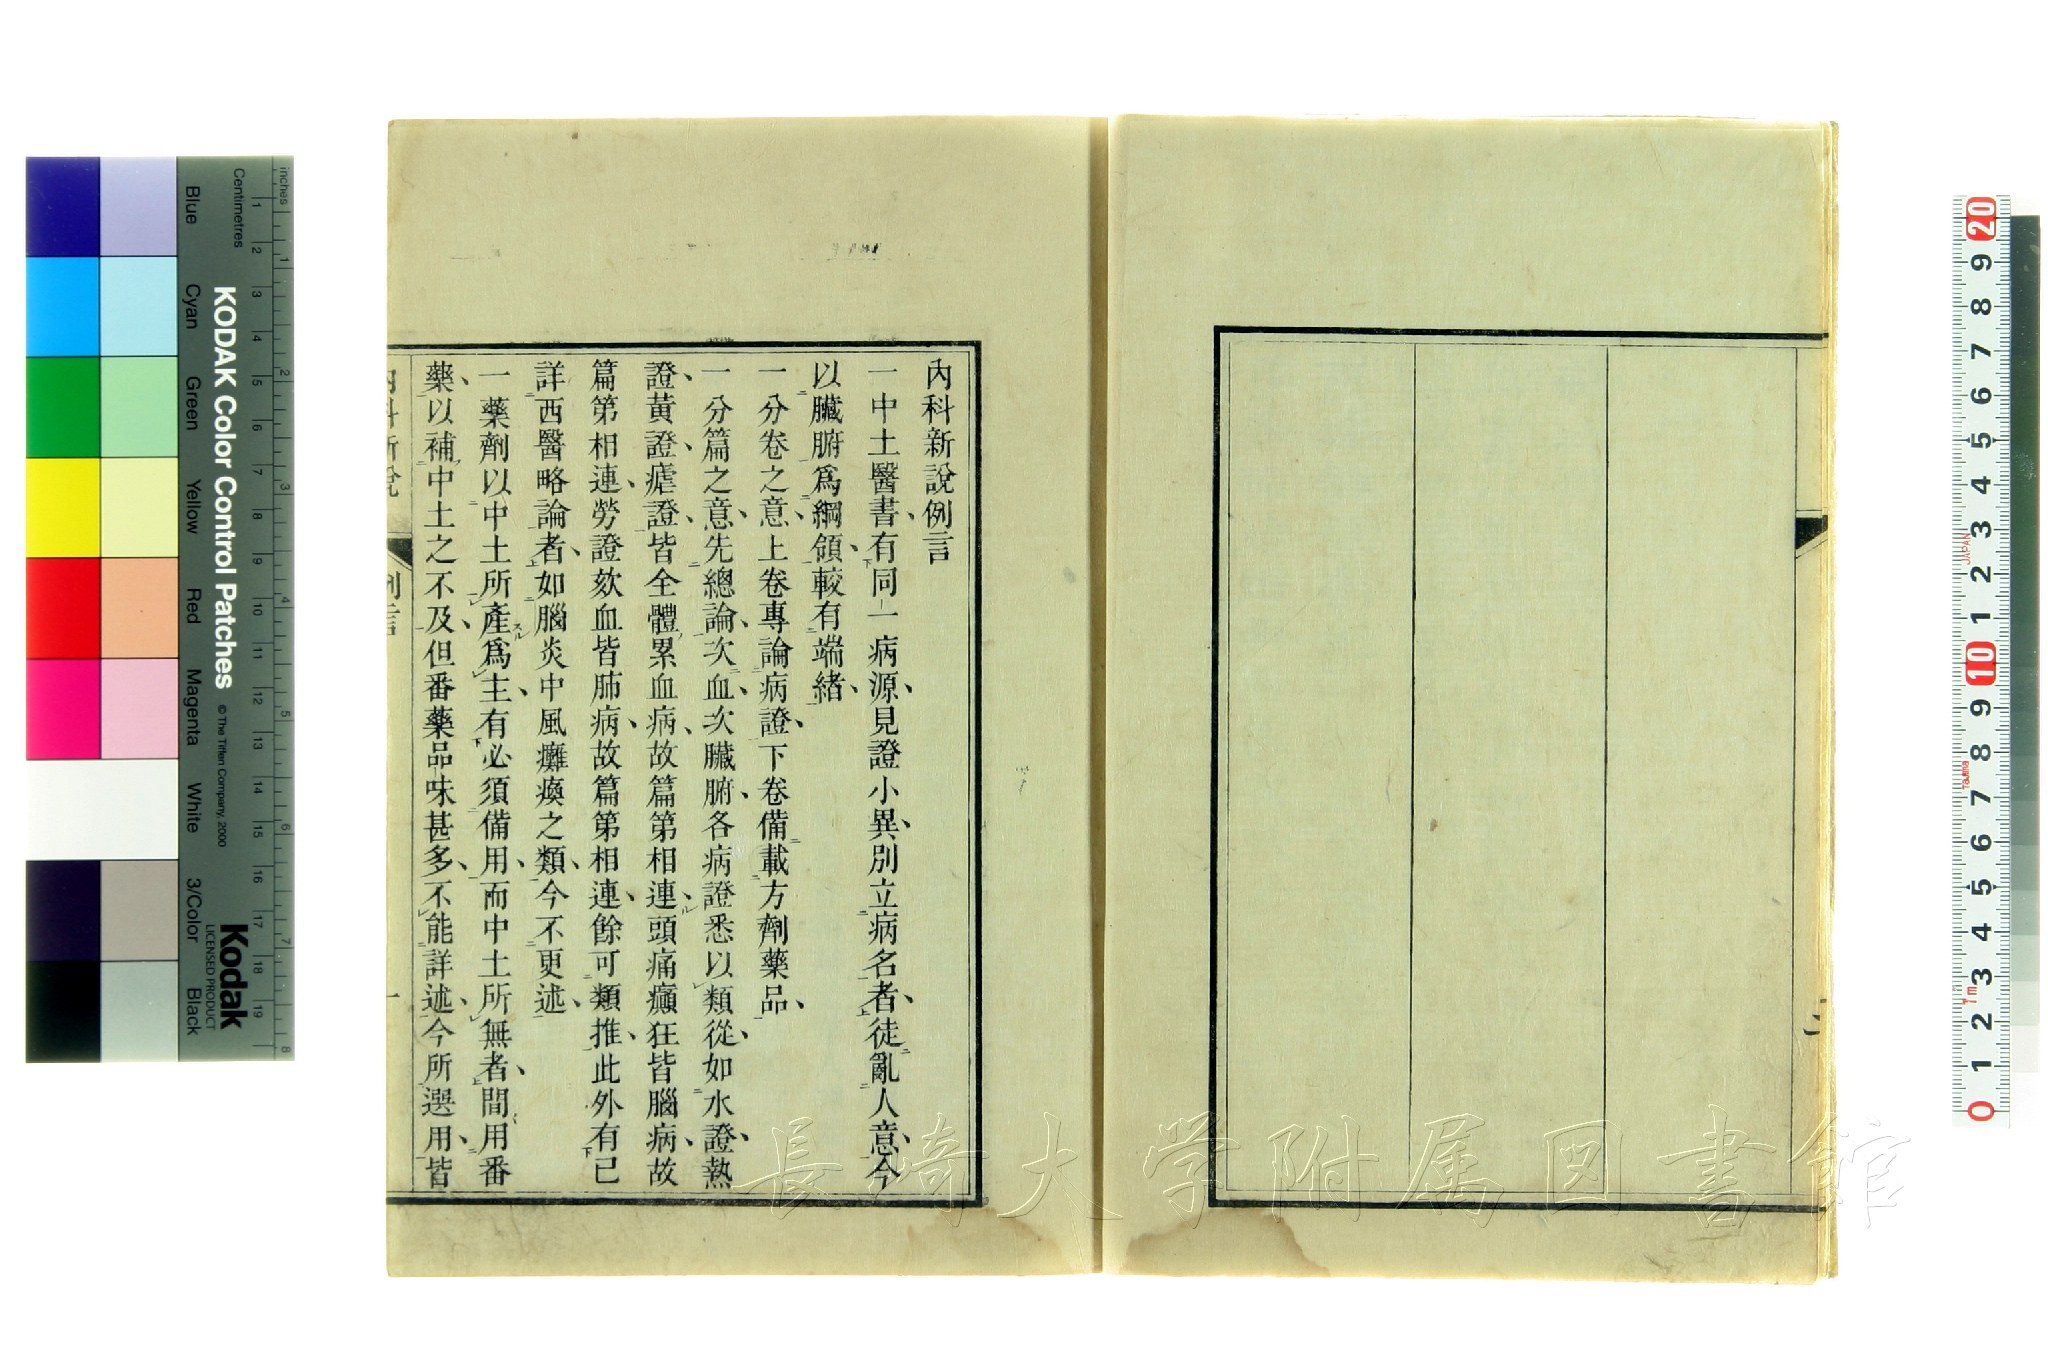 內科新說例言
一中土醫書有同一病源見證小異別立病名者徒亂人意今
以臟腑爲綱領較有端緒
一分卷之意上卷專論病證下卷備載方劑藥品
一分篇之意先總論次血次臟腑各病證悉以類從如水證熱
證黃證瘧證皆全體累血病故篇第相連頭痛癲狂皆腦病故
篇第相連勞證欬血皆肺病故篇第相連餘可類推此外有已
詳西醫略論者如腦炎中風癱瘓之類今不更述
一藥劑以中土所產爲主有必須備用而中土所無者間用番
藥以補中土之不及但番藥品味甚多不能詳述今所選用皆
內科新說
例言
一
長崎大学附属図書館
inches
Centimetres
Blue
Cyan
Green
Yellow
Red
Magenta
White
3/Color
Black
KODAK Color Control Patches
© The Tiffen Company, 2000
Kodak
LICENSED PRODUCT
1 2 3 4 5 6 7 8 9 10 11 12 13 14 15 16 17 18 19
1 2 3 4 5 6 7 8
20 9 8 7 6 5 4 3 2 1 10 9 8 7 6 5 4 3 2 1 0
JAPAN
Tajima
1m